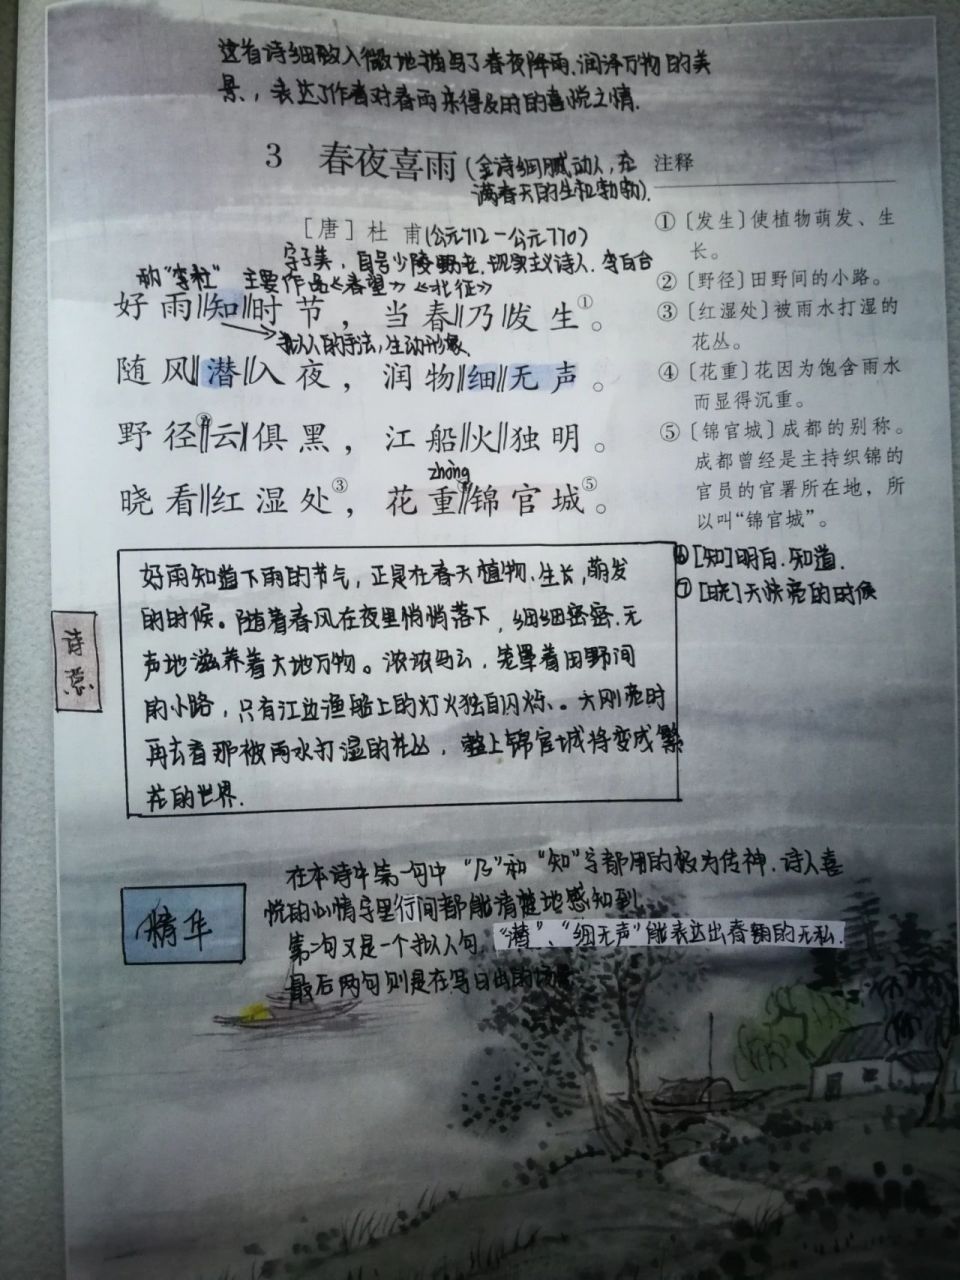 这首诗细致入微地描写了春夜降雨、润泽万物的美
景，表达了作者对春雨来得及时的喜悦之情.
3 春夜喜雨(全诗细腻动人，充
满春天的生机勃勃).
［唐］杜 甫(公元712－公元770)
字子美，自号少陵野老.现实主义诗人.与李白合
称"李杜" 主要作品《春望》《北征》
好雨‖知‖时节，当春‖乃‖发生①。
拟人的手法,生动形象.
随风‖潜‖入夜，润物‖细‖无声。
野径②‖云‖俱黑，江船‖火‖独明。
zhòng
晓看‖红湿处③，花重④‖锦官城⑤。
注释
①〔发生〕使植物萌发、生
长。
②〔野径〕田野间的小路。
③〔红湿处〕被雨水打湿的
花丛。
④〔花重〕花因为饱含雨水
而显得沉重。
⑤〔锦官城〕成都的别称。
成都曾经是主持织锦的
官员的官署所在地，所
以叫“锦官城”。
⑥[知]明白.知道.
⑦[晓]天快亮的时候
诗意
好雨知道下雨的节气，正是在春天植物.生长,萌发
的时候。随着春风在夜里悄悄落下，细细密密.无
声地滋养着大地万物。浓浓乌云，笼罩着田野间
的小路，只有江边渔船上的灯火独自闪烁。天刚亮时
再去看那被雨水打湿的花丛，整上锦官城将变成繁
花的世界.
精华
在本诗中第一句中"乃"和"知"字都用的极为传神.诗人喜
悦的心情字里行间都能清楚地感知到.
第二句又是一个拟人句，"潜"、"细无声"能表达出春雨的无私.
最后两句则是在写日出的场景